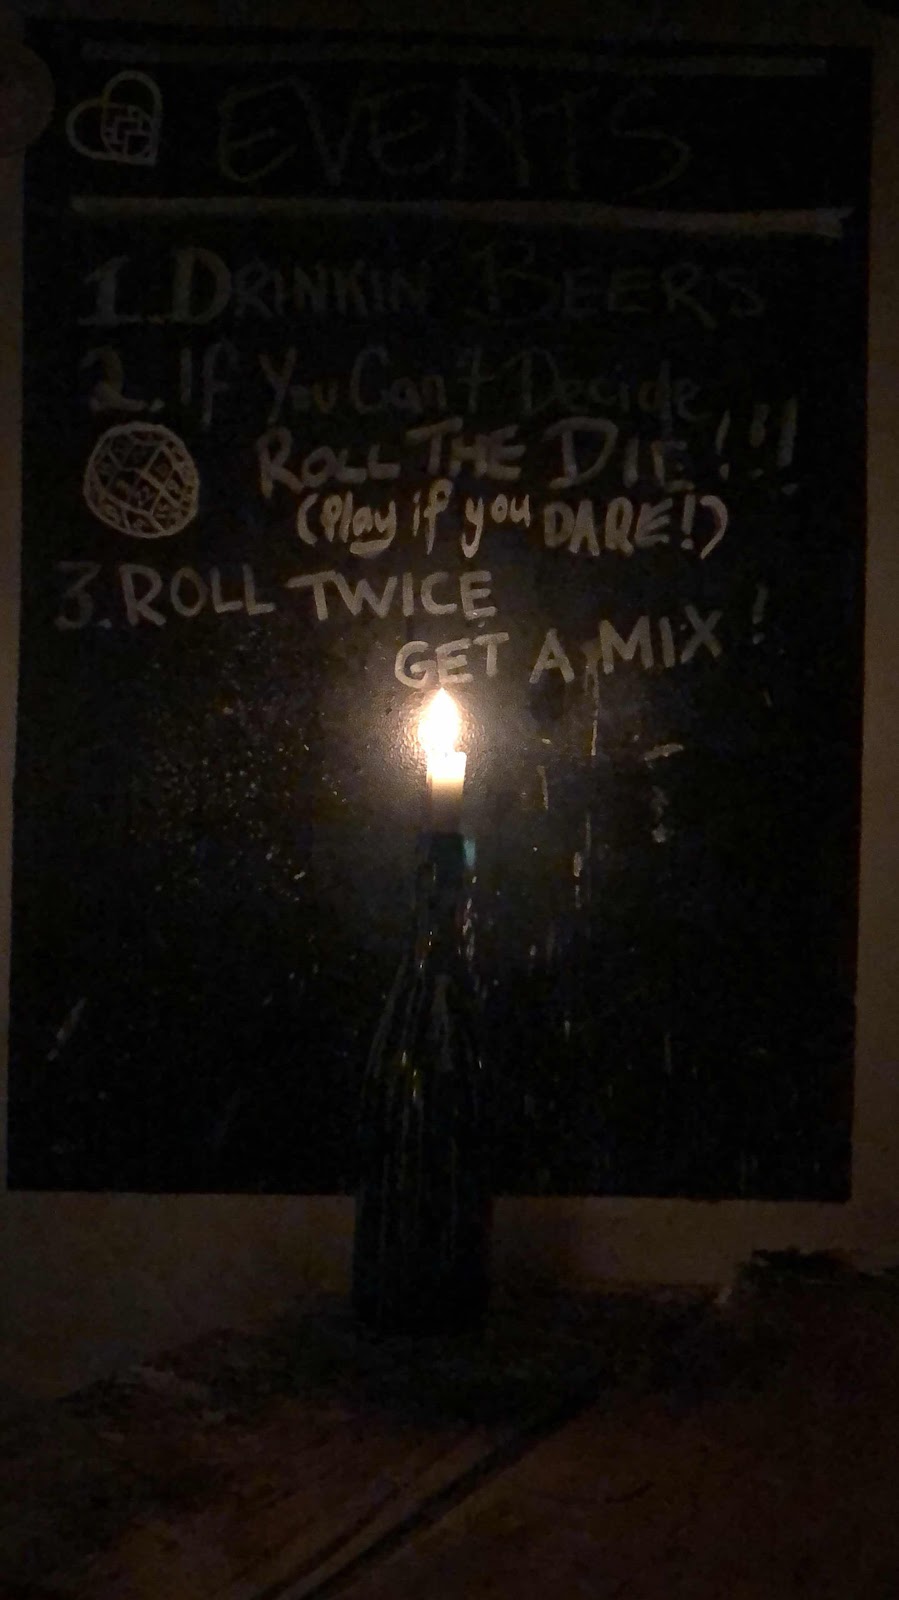 EVENTS
1. DRINKIN' BEERS
2. If You Can't Decide
ROLL THE DIE!!!
(Play if you DARE!)
3. ROLL TWICE
GET A MIX!